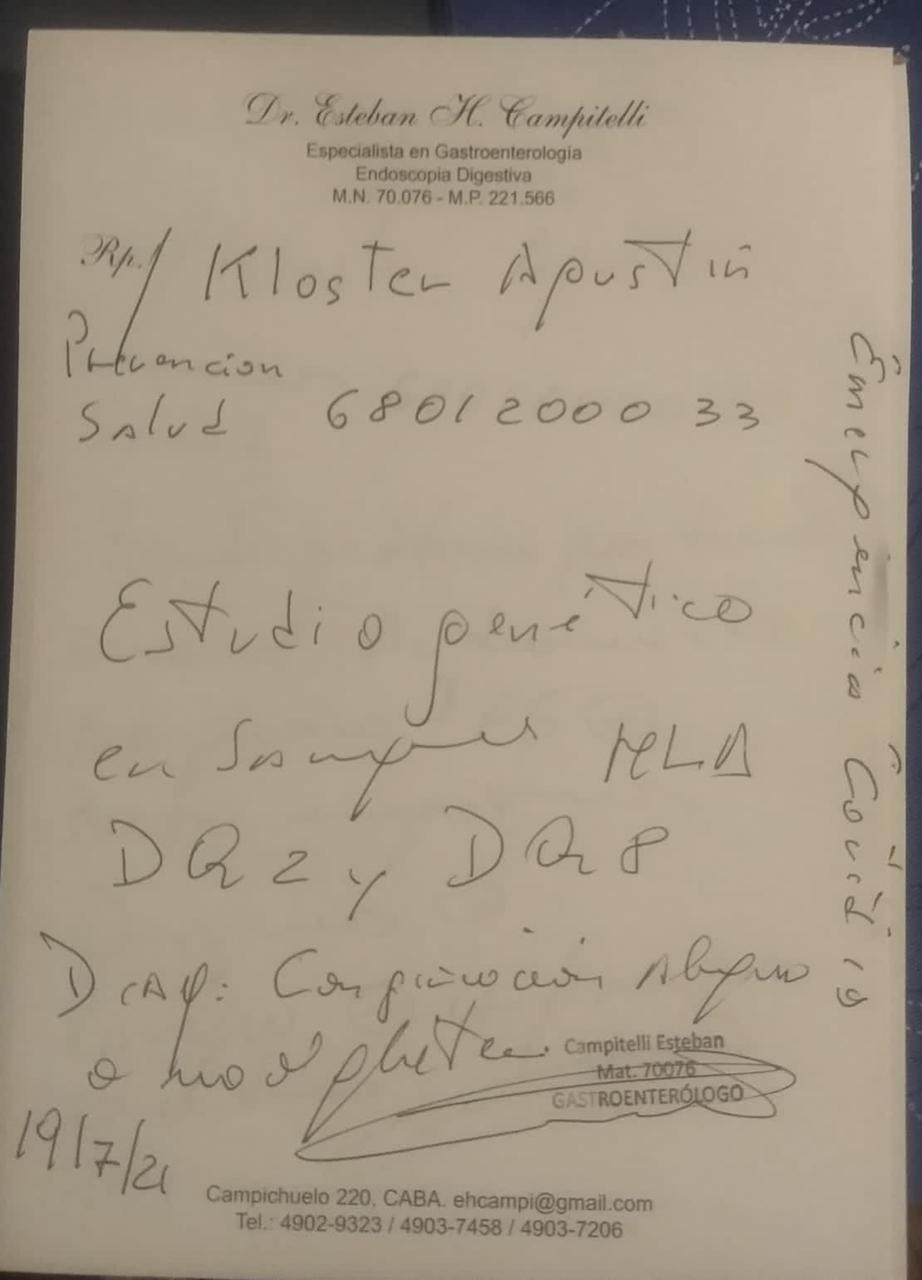 Dr. Esteban H. Campitelli
Especialista en Gastroenterología
Endoscopia Digestiva
M.N. 70.076 - M.P. 221.566
Rp./ Kloster Agustín
Prevencion
Salud 6801200033
Estudio genético
en Sangre HLA
DQ2 y DQ8
Diag:
o no
Campitelli Esteban
Mat. 70076
GASTROENTERÓLOGO
19/7/21
Campichuelo 220, CABA. ehcampi@gmail.com
Tel.: 4902-9323 / 4903-7458 / 4903-7206
Emergencia Covid 19